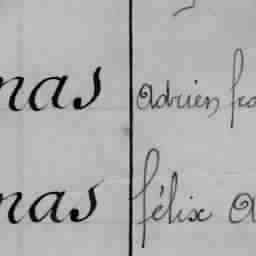 nas adrien fra
nas félix a